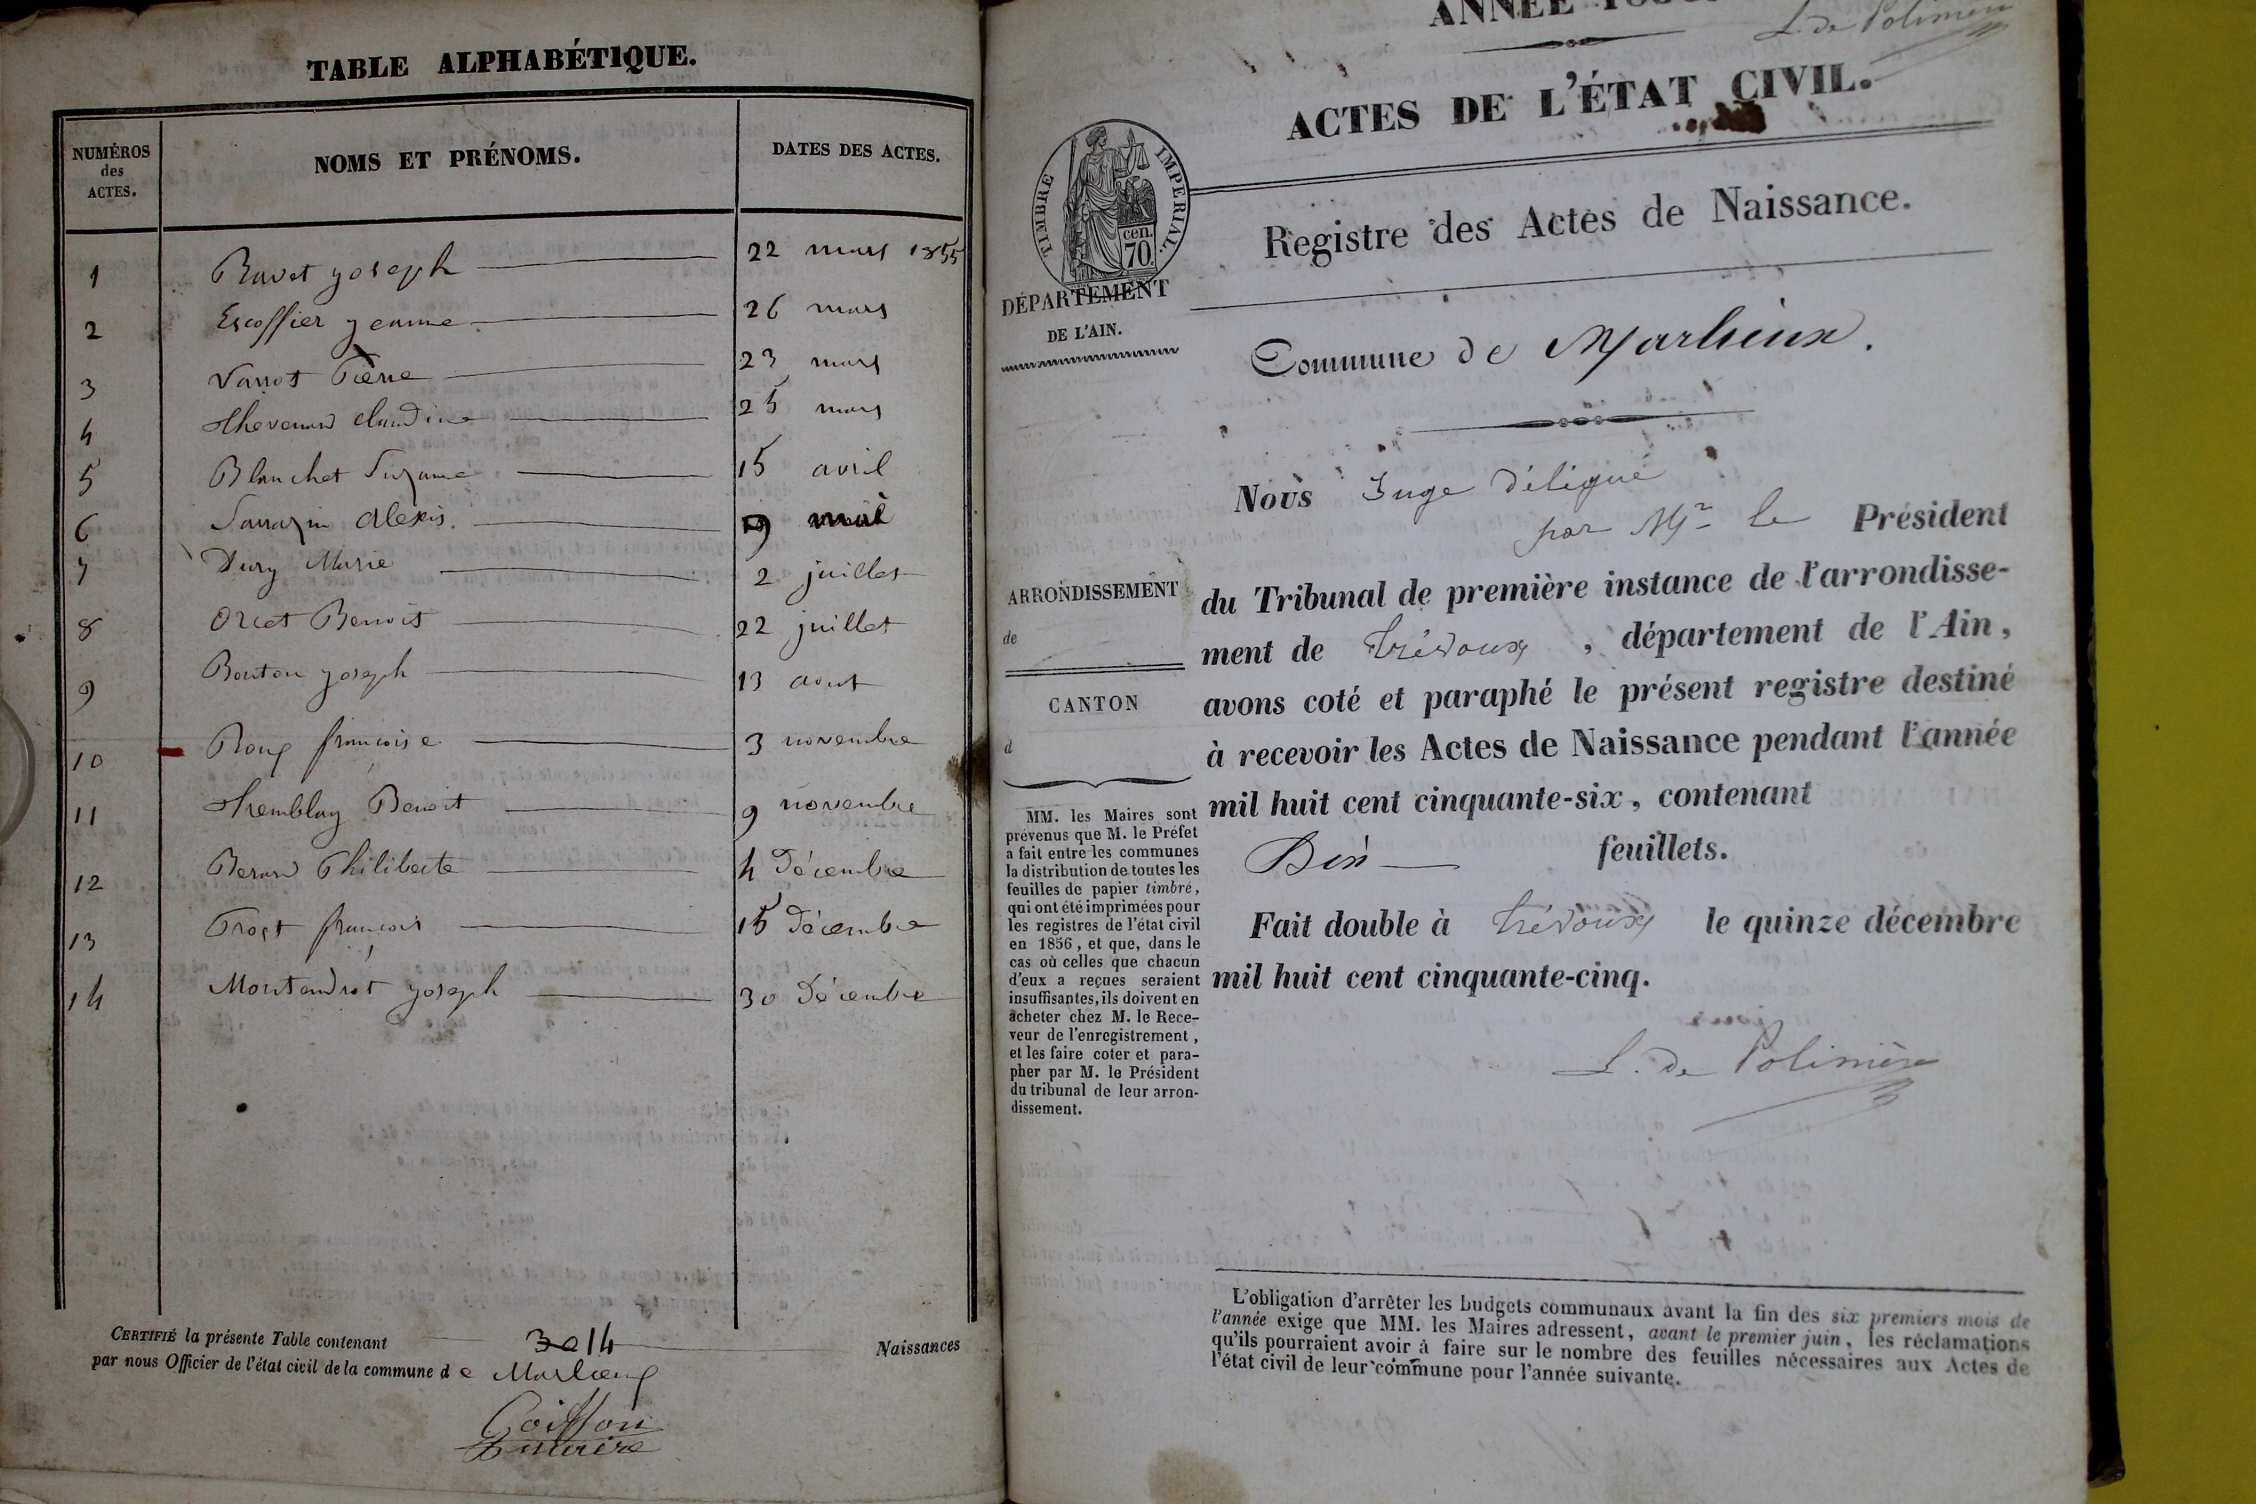 TABLE ALPHABÉTIQUE.
NUMÉROS des ACTES.
NOMS ET PRÉNOMS.
DATES DES ACTES.
1 Ravet joseph 22 mars 1855
2 Escoffier jeanne 26 mars
3 Varrot Pierre 23 mars
4 thevenard claudine 25 mars
5 Blanchet Suzanne 15 avril
6 Sarrazin Alexis. 9 mai
7 Dury Marie 2 juillet
8 Orcet Benoit 22 juillet
9 Bouton joseph 13 aout
10 Roux françoise 3 novembre
11 tremblay Benoit 9 novembre
12 Berard Philiberte 4 Décembre
13 Prost françois 15 Décembre
14 Montandrot joseph 30 Décembre
CERTIFIÉ la présente Table contenant 14 Naissances
par nous Officier de l'état civil de la commune de Marlieux
Coiffon
maire
ANNÉE
L. de Polinière
ACTES DE L'ÉTAT CIVIL.
TIMBRE IMPERIAL.
cen.
70.
DÉPARTEMENT
DE L'AIN.
Registre des Actes de Naissance.
Commune de Marlieux.
Nous Juge Délégué
par Mr le Président
du Tribunal de première instance de l'arrondisse-
ment de Trévoux, département de l'Ain,
avons coté et paraphé le présent registre destiné
à recevoir les Actes de Naissance pendant l'année
mil huit cent cinquante-six, contenant
Dix feuillets.
Fait double à Trévoux le quinze décembre
mil huit cent cinquante-cinq.
L. de Polinière
ARRONDISSEMENT
de
CANTON
d
MM. les Maires sont
prévenus que M. le Préfet
a fait entre les communes
la distribution de toutes les
feuilles de papier timbré,
qui ont été imprimées pour
les registres de l'état civil
en 1856, et que, dans le
cas où celles que chacun
d'eux a reçues seraient
insuffisantes, ils doivent en
acheter chez M. le Rece-
veur de l'enregistrement,
et les faire coter et para-
pher par M. le Président
du tribunal de leur arron-
dissement.
L'obligation d'arrêter les budgets communaux avant la fin des six premiers mois de
l'année exige que MM. les Maires adressent, avant le premier juin, les réclamations
qu'ils pourraient avoir à faire sur le nombre des feuilles nécessaires aux Actes de
l'état civil de leur commune pour l'année suivante.